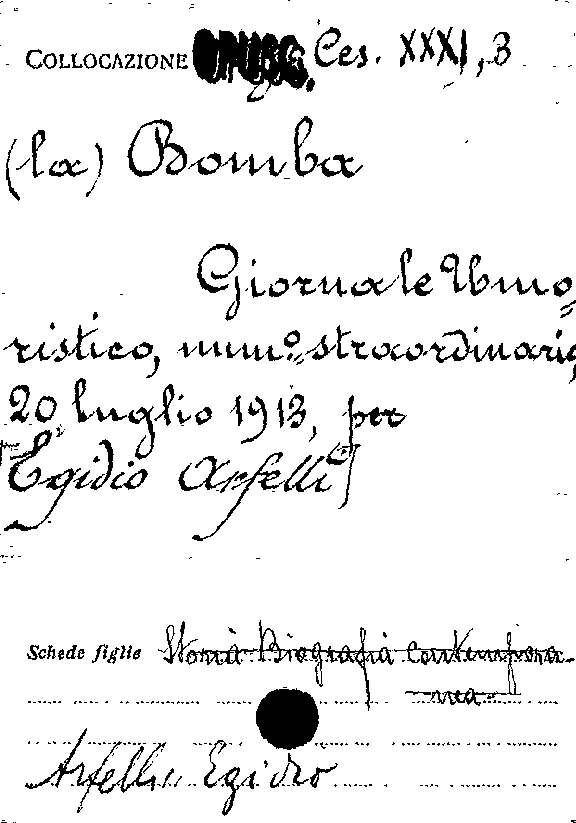 COLLOCAZIONE OPUSC. Ces. XXXI, 3
(la) Bomba
Giornale Umo=
ristico, num.º straordinario,
20 luglio 1913, per
Egidio Arfelli
Schede figlie Storia Biografia contempora-
nea
Arfelli Egidio